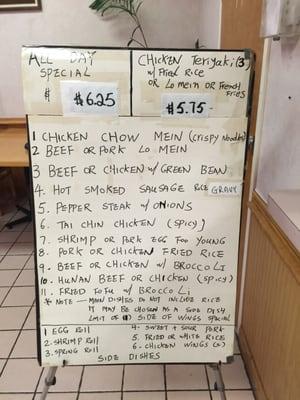 ALL DAY
SPECIAL
$ $6.25
CHICKEN Teriyaki (3)
w/ FRIED RICE
OR LO MEIN OR FRENCH
FRIES
$5.75
1 CHICKEN CHOW MEIN (CRISPY NOODLES)
2 BEEF OR PORK LO MEIN
3 BEEF OR CHICKEN w/ GREEN BEAN
4. HOT SMOKED SAUSAGE RICE GRAVY
5. PEPPER STEAK w/ ONIONS
6. TAI CHIN CHICKEN (SPICY)
7. SHRIMP OR PORK EGG FOO YOUNG
8. PORK OR CHICKEN FRIED RICE
9. BEEF OR CHICKEN w/ BROCCOLI
10. HUNAN BEEF OR CHICKEN (SPICY)
11. FRIED TOFU w/ BROCCOLI
* NOTE — MAIN DISHES DO NOT INCLUDE RICE
IT MAY BE CHOSEN AS A SIDE DISH
LIMIT OF (1) SIDE OF WINGS SPECIAL
1 EGG ROLL
2. SHRIMP ROLL
3. SPRING ROLL
4. SWEET & SOUR PORK
5. FRIED OR WHITE RICE
6. CHICKEN WINGS
SIDE DISHES